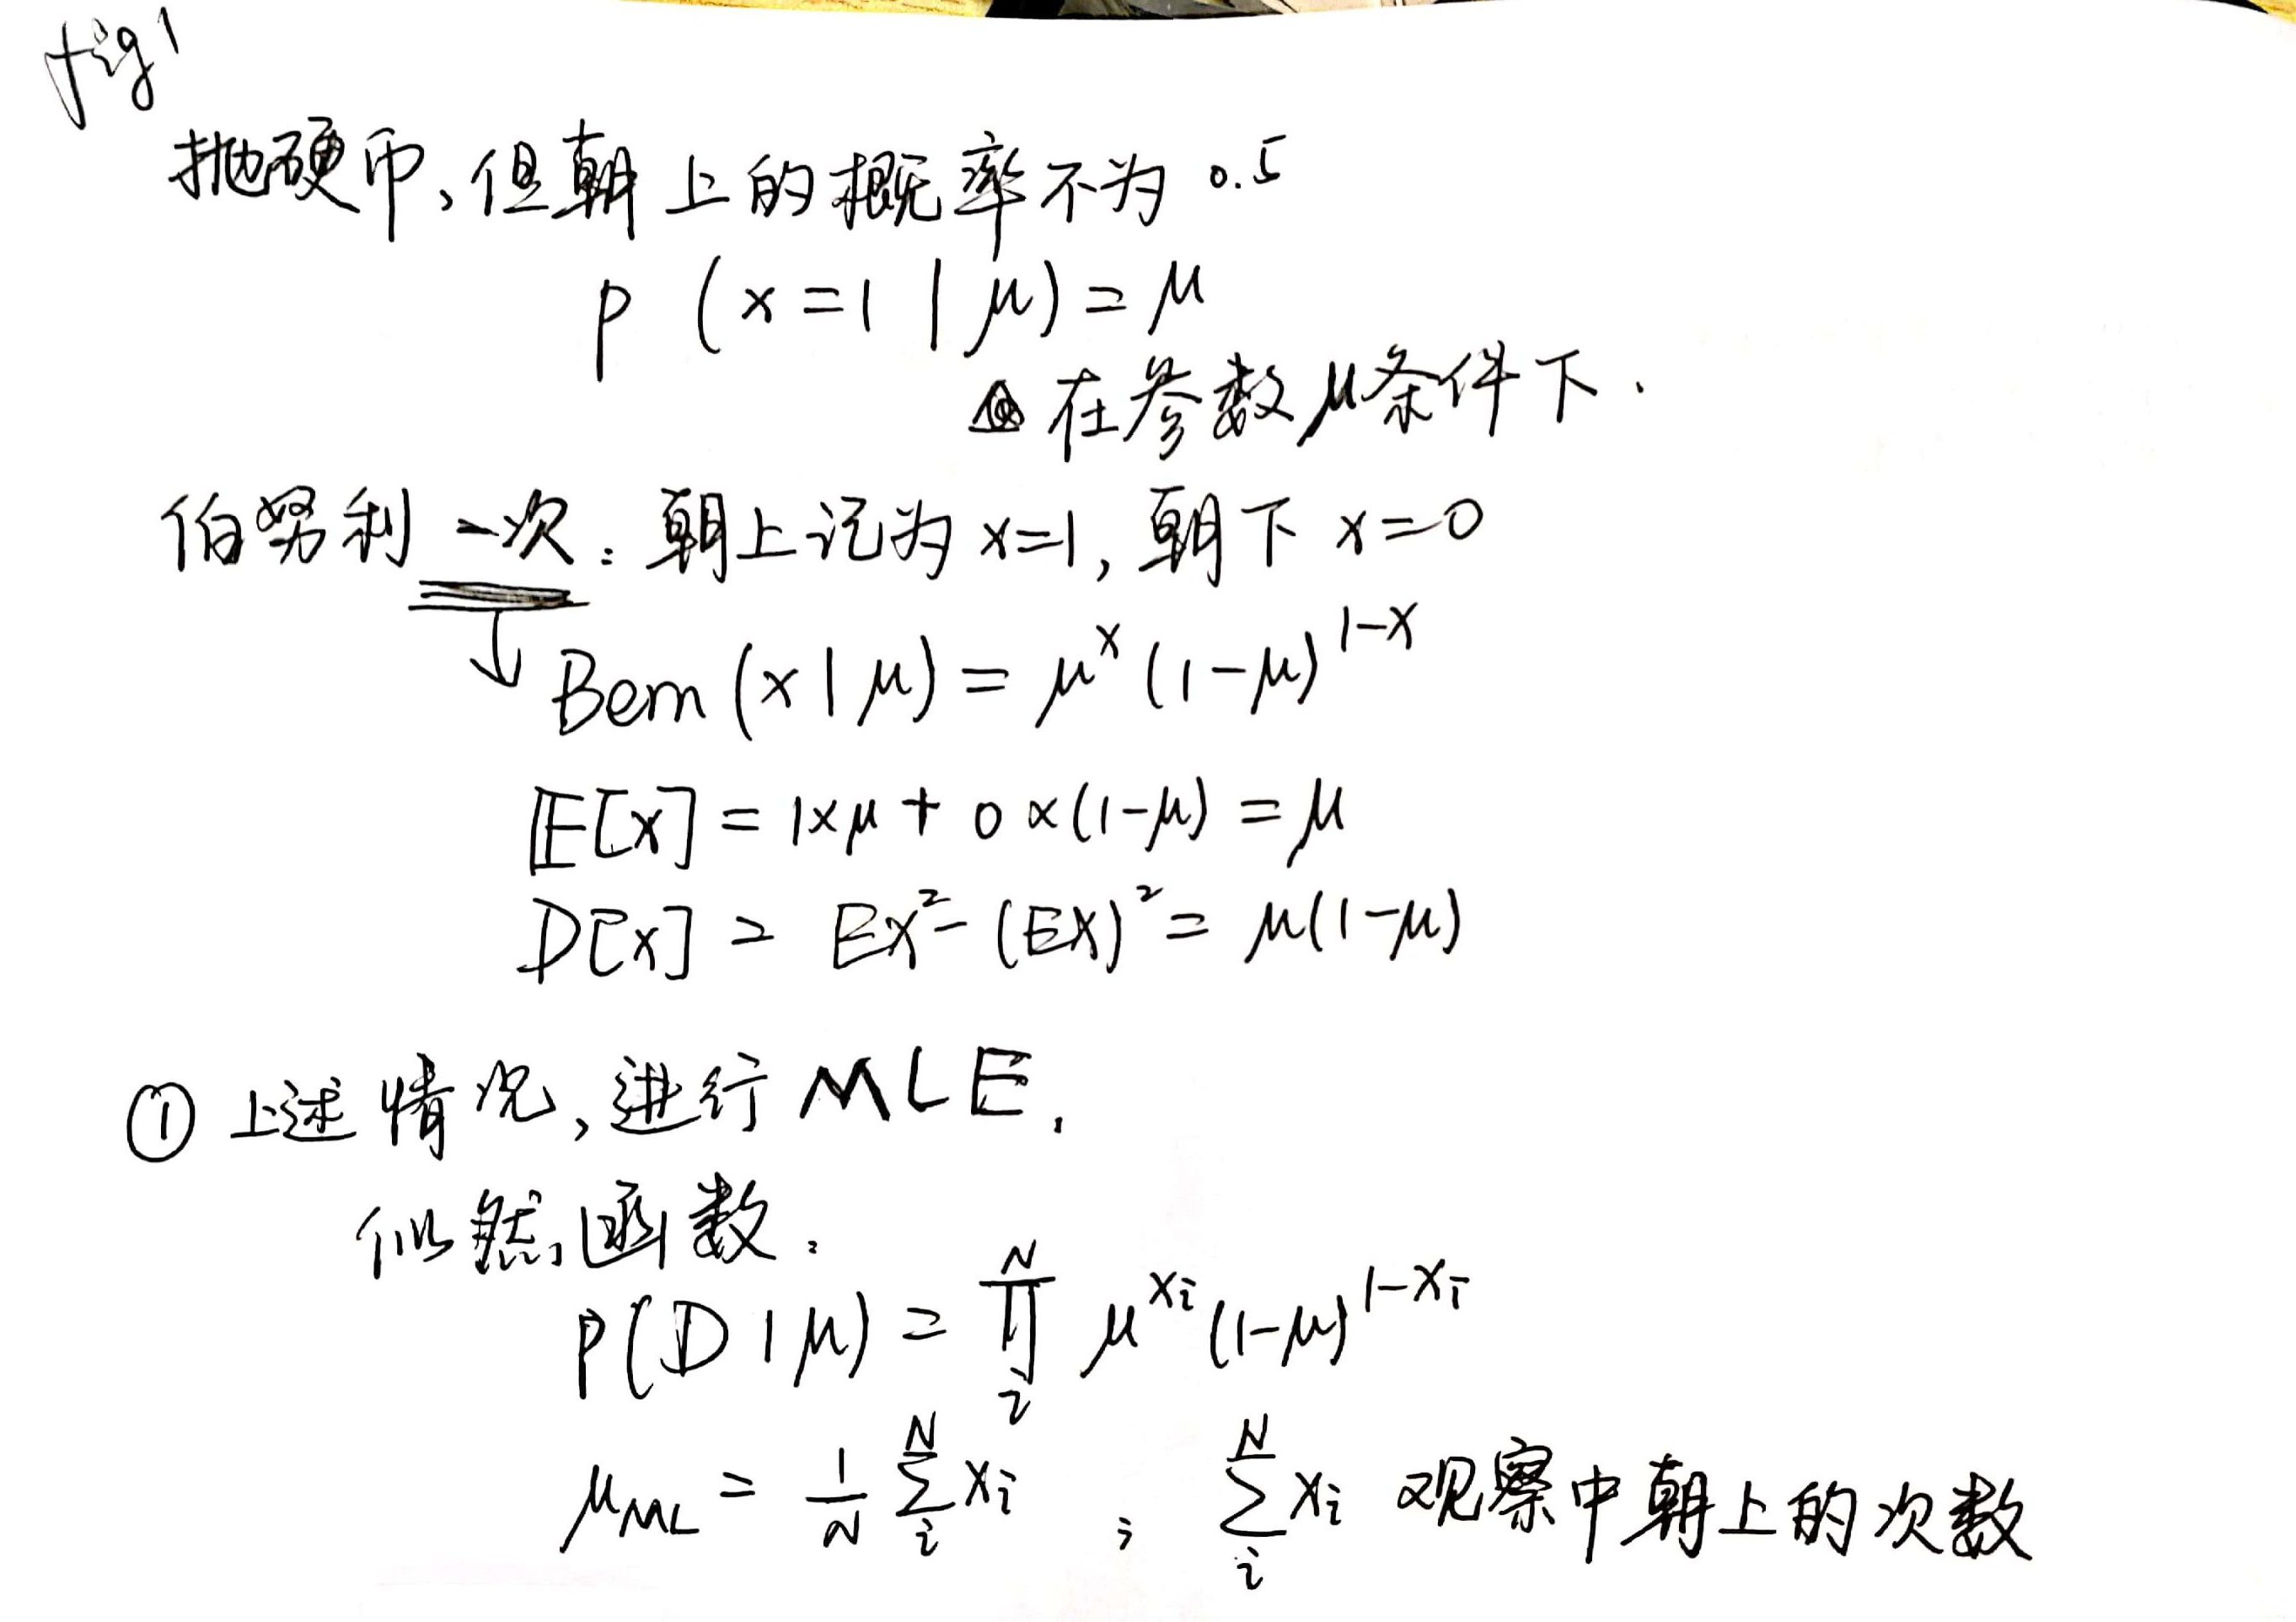 fig1
抛硬币,但朝上的概率不为 0.5
p (x=1 | μ) = μ
在参数μ条件下.
伯努利一次: 朝上记为 x=1, 朝下 x=0
Bern (x | μ) = μ^x (1-μ)^{1-x}
E[x] = 1×μ + 0×(1-μ) = μ
D[x] = EX² - (EX)² = μ(1-μ)
① 上述情况,进行 MLE.
似然函数:
P(D | μ) = ∏_i^N μ^{x_i} (1-μ)^{1-x_i}
μ_ML = 1/N ∑_i^N x_i ; ∑_i^N x_i 观察中朝上的次数